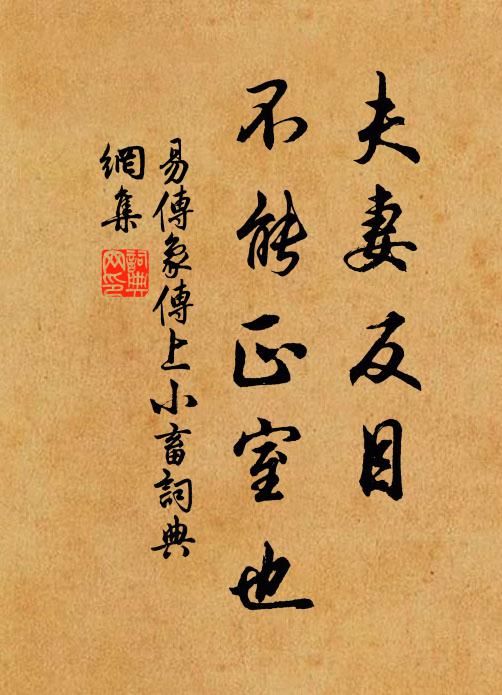 夫妻反目
不能正室也
易傳象傳上小畜詞典
網集
詞典
网印